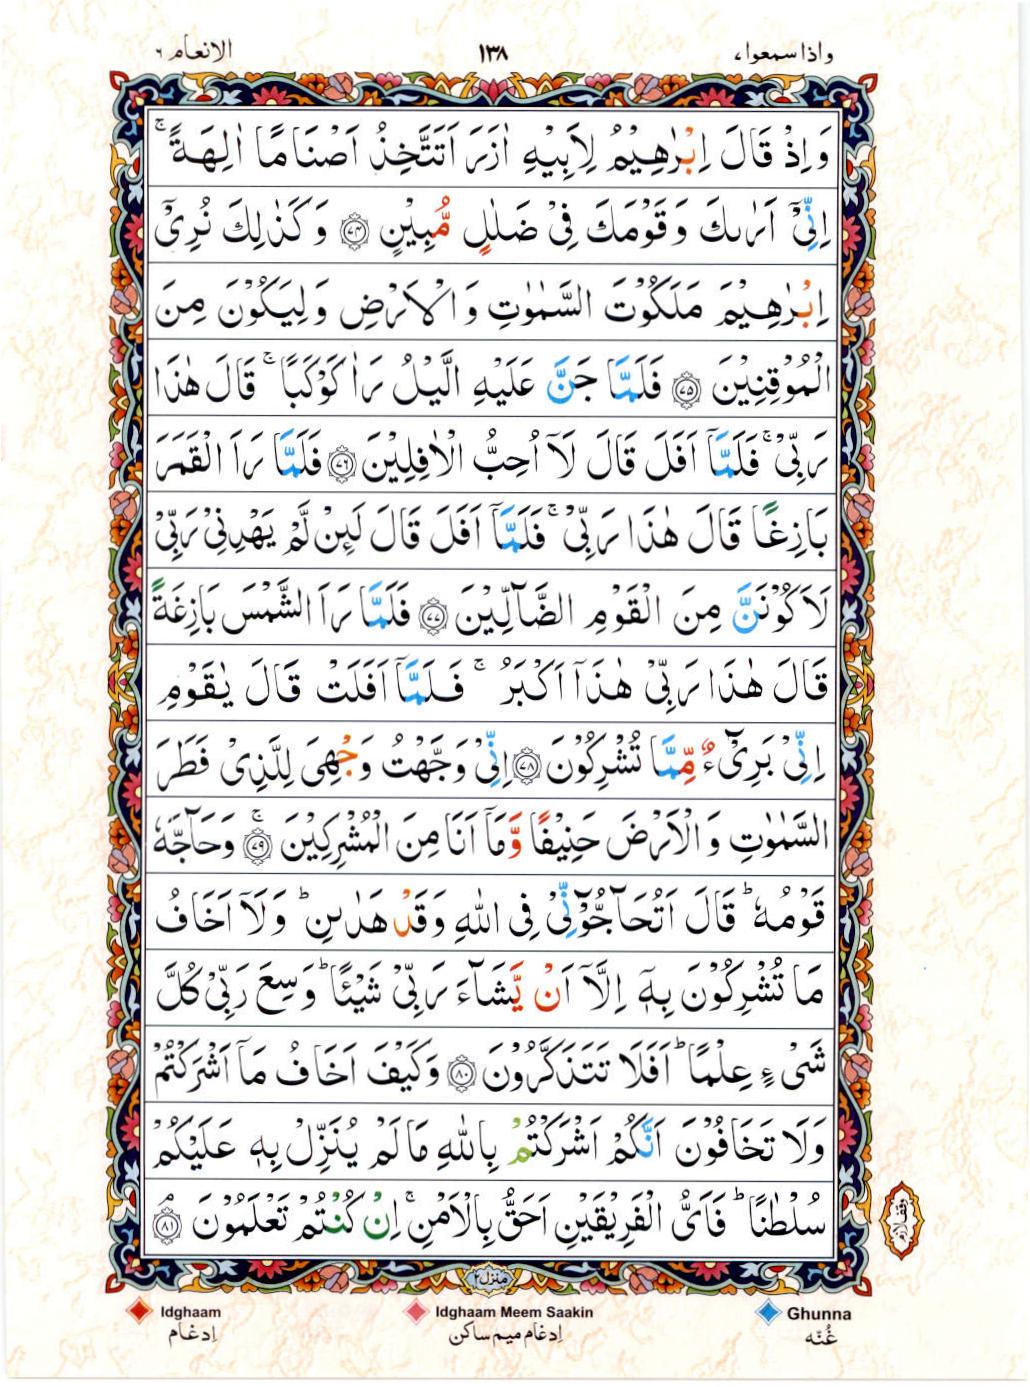 واذا سمعوا ٧ ١٣٨ الانعام ٦
وَاِذْ قَالَ اِبْرٰهِيْمُ لِاَبِيْهِ اٰزَرَ اَتَتَّخِذُ اَصْنَامًا اٰلِهَةً ۚ
اِنِّىْۤ اَرٰىكَ وَقَوْمَكَ فِىْ ضَلٰلٍ مُّبِيْنٍ ۝٧٤ وَكَذٰلِكَ نُرِىْۤ
اِبْرٰهِيْمَ مَلَكُوْتَ السَّمٰوٰتِ وَالْاَرْضِ وَلِيَكُوْنَ مِنَ
الْمُوْقِنِيْنَ ۝٧٥ فَلَمَّا جَنَّ عَلَيْهِ الَّيْلُ رَاٰ كَوْكَبًا ۚ قَالَ هٰذَا
رَبِّىْ ۚ فَلَمَّاۤ اَفَلَ قَالَ لَاۤ اُحِبُّ الْاٰفِلِيْنَ ۝٧٦ فَلَمَّا رَاَ الْقَمَرَ
بَازِغًا قَالَ هٰذَا رَبِّىْ ۚ فَلَمَّاۤ اَفَلَ قَالَ لَئِنْ لَّمْ يَهْدِنِىْ رَبِّىْ
لَاَكُوْنَنَّ مِنَ الْقَوْمِ الضَّآلِّيْنَ ۝٧٧ فَلَمَّا رَاَ الشَّمْسَ بَازِغَةً
قَالَ هٰذَا رَبِّىْ هٰذَاۤ اَكْبَرُ ۚ فَلَمَّاۤ اَفَلَتْ قَالَ يٰقَوْمِ
اِنِّىْ بَرِىْٓءٌ مِّمَّا تُشْرِكُوْنَ ۝٧٨ اِنِّىْ وَجَّهْتُ وَجْهِىَ لِلَّذِىْ فَطَرَ
السَّمٰوٰتِ وَالْاَرْضَ حَنِيْفًا وَّمَاۤ اَنَا مِنَ الْمُشْرِكِيْنَ ۝٧٩ ۚ وَحَآجَّهٗ
قَوْمُهٗ ؕ قَالَ اَتُحَآجُّوْٓنِّىْ فِى اللّٰهِ وَقَدْ هَدٰىنِ ؕ وَلَاۤ اَخَافُ
مَا تُشْرِكُوْنَ بِهٖۤ اِلَّاۤ اَنْ يَّشَآءَ رَبِّىْ شَيْئًا ؕ وَسِعَ رَبِّىْ كُلَّ
شَىْءٍ عِلْمًا ؕ اَفَلَا تَتَذَكَّرُوْنَ ۝٨٠ وَكَيْفَ اَخَافُ مَاۤ اَشْرَكْتُمْ
وَلَا تَخَافُوْنَ اَنَّكُمْ اَشْرَكْتُمْ بِاللّٰهِ مَا لَمْ يُنَزِّلْ بِهٖ عَلَيْكُمْ
سُلْطٰنًا ؕ فَاَىُّ الْفَرِيْقَيْنِ اَحَقُّ بِالْاَمْنِ ۚ اِنْ كُنْتُمْ تَعْلَمُوْنَ ۝٨١ ۘ
وقف لازم
منزل ٢
Idghaam Idghaam Meem Saakin Ghunna
اِدغام اِدغام میم ساکن غُنّه